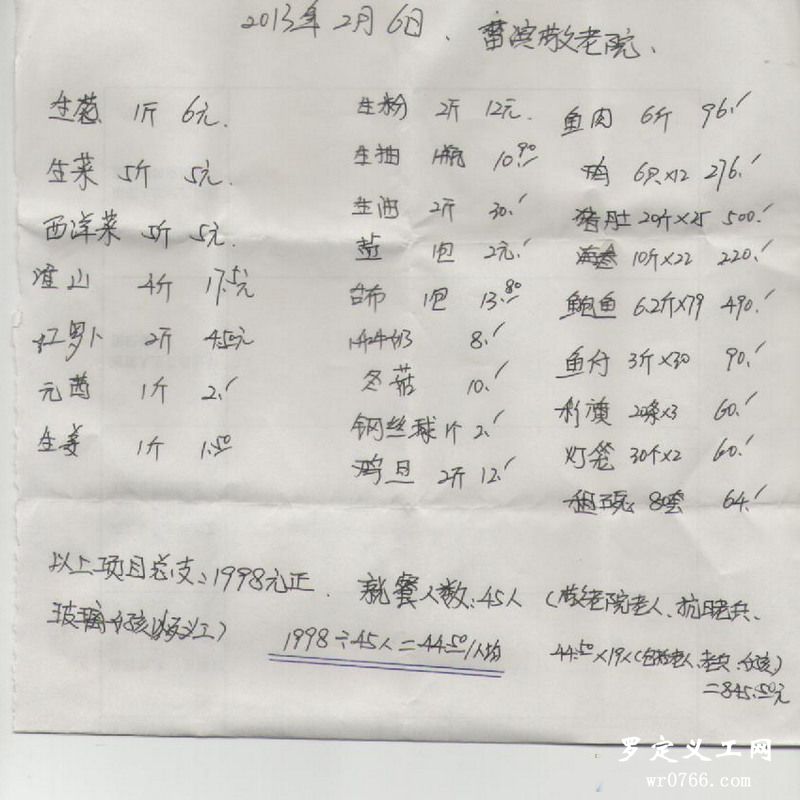 2013年2月6日、蒈滨敬老院、
生葱 1斤 6元.
生菜 5斤 5元.
西洋菜 5斤 5元.
淮山 4斤 17.5元
红萝卜 2斤 4.50元
元茜 1斤 2./
生姜 1斤 1.50
生粉 2斤 12元.
生抽 1瓶 10.90
生油 2斤 30./
盐 1包 2元./
台布 1包 13.80
8./
冬菇 10./
钢丝球 1个 2./
鸡旦 2斤 12./
鱼肉 6斤 96./
鸡 6只×12 276./
猪肚 20斤×25 500./
海参 10斤×22 220./
鲍鱼 6.2斤×79 490./
鱼付 3斤×30 90./
20条×3 60./
灯笼 30个×2 60./
租碗 80套 64./
以上项目总支:1998元正. 就餐人数:45人 (敬老院老人、抗日老兵、
玻璃
1998÷45人=44.50/人均
44.50×19人(包括老人、老兵、
=845.50元
罗定义工网
wr0766.com